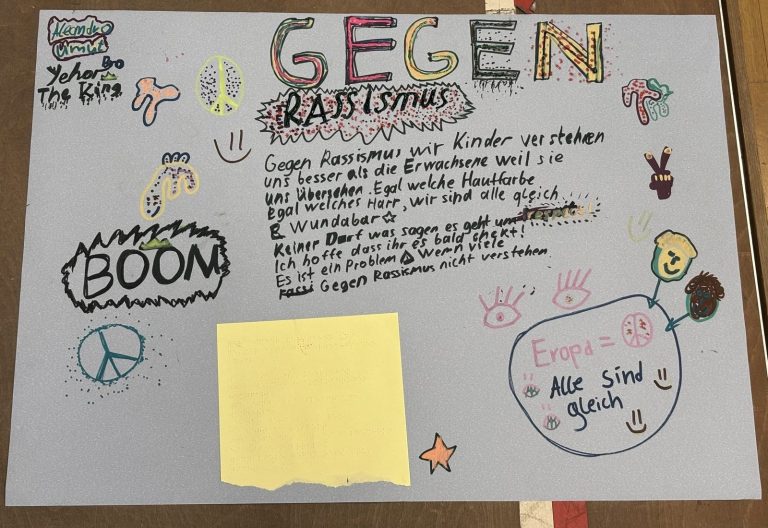 Alejandro
Umut
Yehor Bro
The King
GEGEN
RASSISMUS
Gegen Rassismus wir Kinder verstehren
uns besser als die Erwachsene weil sie
uns Übersehen. Egal welche Hautfarbe
Egal welches Harr, wir sind alle gleich
Wundabar
Keiner Darf was sagen es geht um
Ich hoffe dass ihr es bald chekt!
Es ist ein Problem Wenn viele
Gegen Rassismus nicht verstehen.
BOOM
Eropa =
Alle sind
gleich